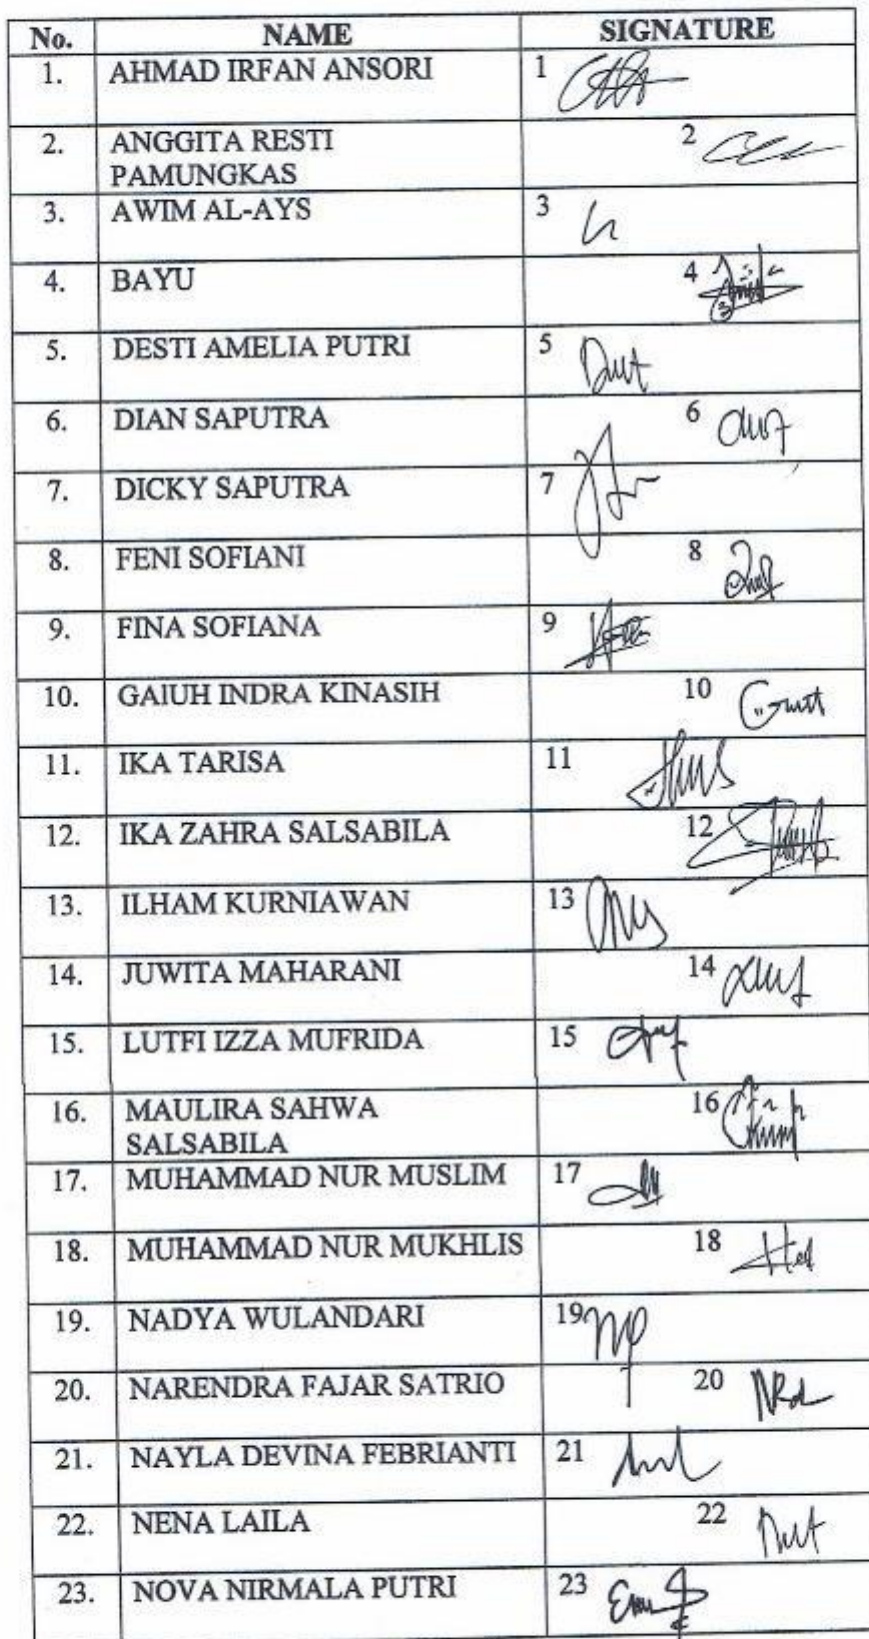 No. NAME SIGNATURE
1. AHMAD IRFAN ANSORI 1
2. ANGGITA RESTI 2
PAMUNGKAS
3. AWIM AL-AYS 3
4. BAYU 4
5. DESTI AMELIA PUTRI 5
6. DIAN SAPUTRA 6
7. DICKY SAPUTRA 7
8. FENI SOFIANI 8
9. FINA SOFIANA 9
10. GAIUH INDRA KINASIH 10
11. IKA TARISA 11
12. IKA ZAHRA SALSABILA 12
13. ILHAM KURNIAWAN 13
14. JUWITA MAHARANI 14
15. LUTFI IZZA MUFRIDA 15
16. MAULIRA SAHWA 16
SALSABILA
17. MUHAMMAD NUR MUSLIM 17
18. MUHAMMAD NUR MUKHLIS 18
19. NADYA WULANDARI 19
20. NARENDRA FAJAR SATRIO 20
21. NAYLA DEVINA FEBRIANTI 21
22. NENA LAILA 22
23. NOVA NIRMALA PUTRI 23